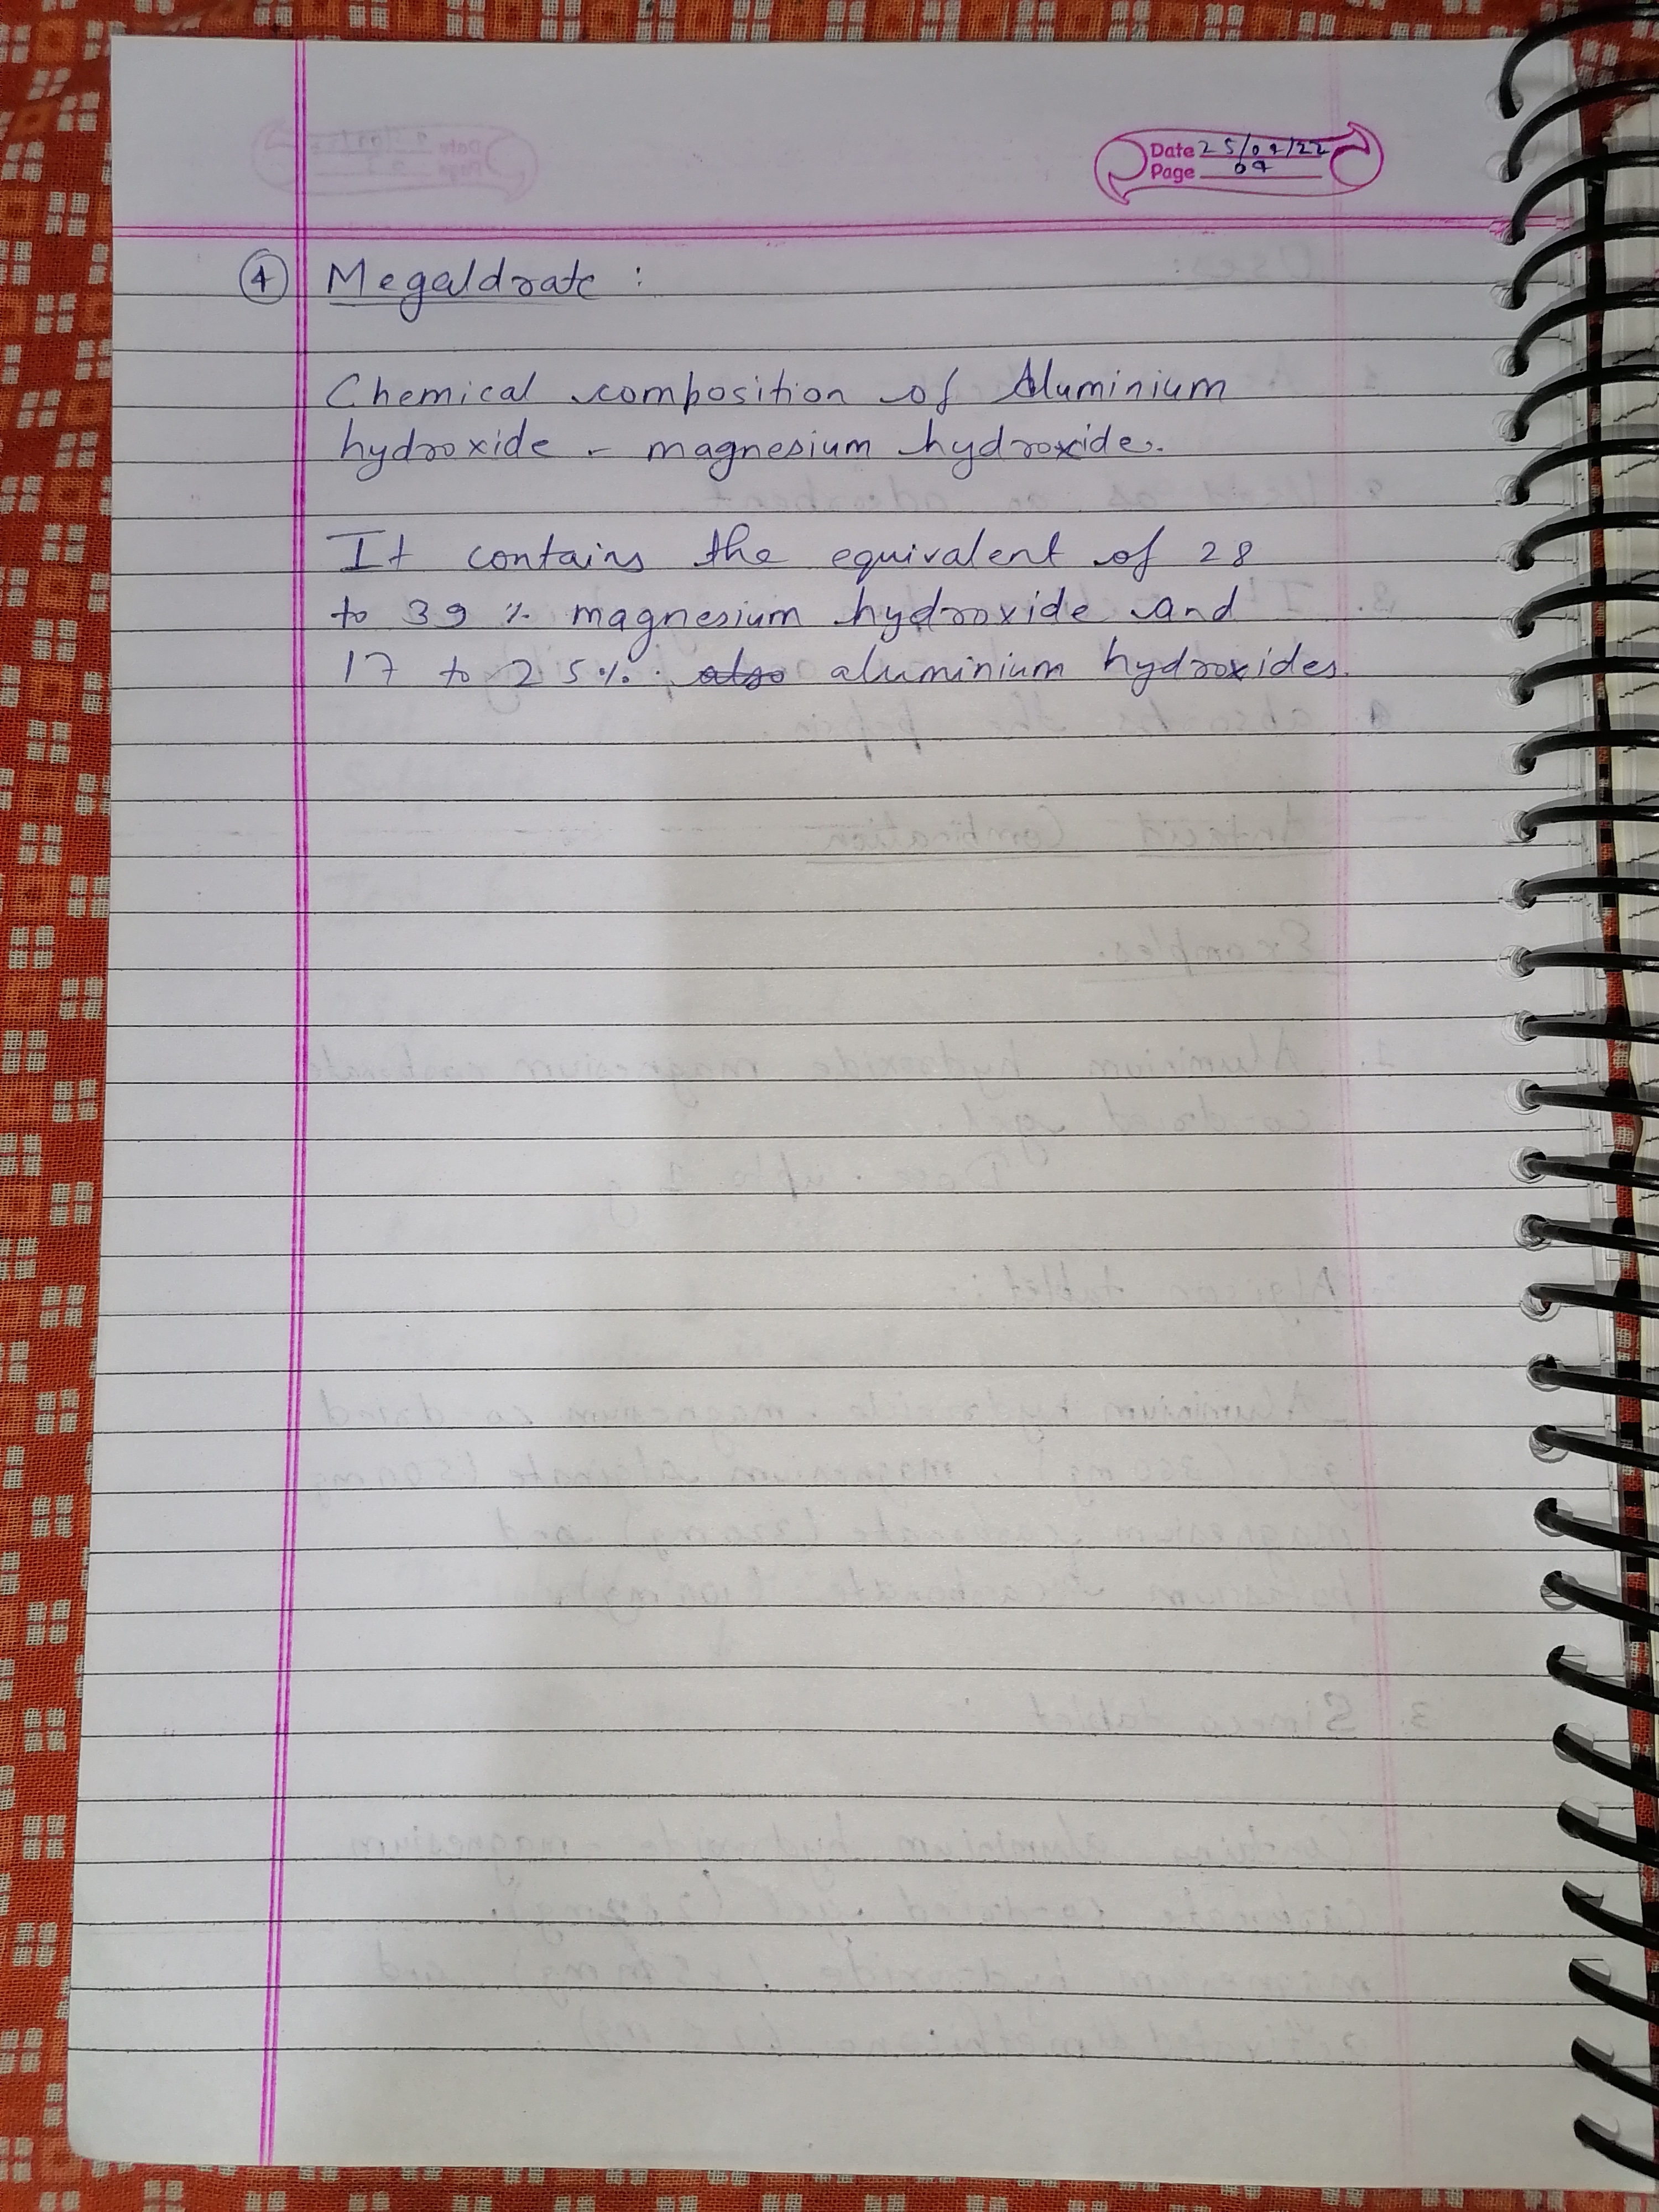 Date 25/07/22
Page 04
④ Megaldrate :
Chemical composition of Aluminium
hydroxide - magnesium hydroxide.
It contains the equivalent of 28
to 39 % magnesium hydroxide and
17 to 25%. also aluminium hydroxides.